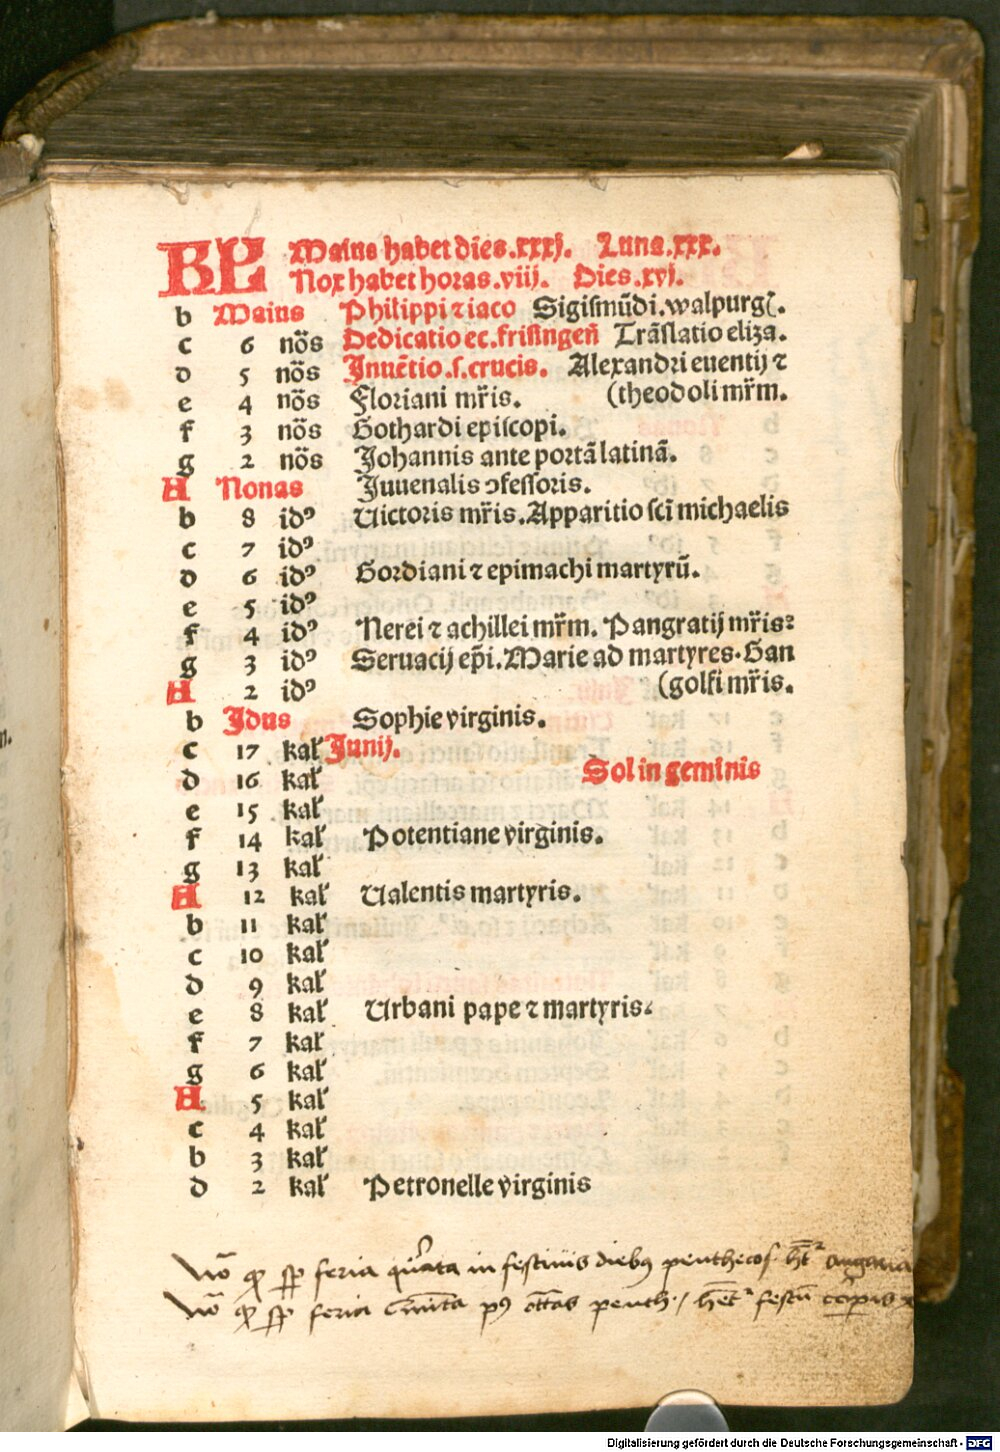 KL Maius habet dies.xxxj. Luna.xxx.
Nox habet horas.viij. Dies.xvj.
b Maius Philippi ⁊ iaco Sigiſmūdi.walpurg.
c 6 nōs Dedicatio ec.friſingeñ Trāſlatio eliza.
d 5 nōs Inuētio.ſ.crucis. Alexandri euentij ⁊
e 4 nōs Floriani mr̄is. (theodoli mr̄m.
f 3 nōs Gothardi epiſcopi.
g 2 nōs Johannis ante portā latinā.
A Nonas Juuenalis ↄfeſſoris.
b 8 idꝰ Uictoris mr̄is.Apparitio ſcī michaelis
c 7 idꝰ
d 6 idꝰ Gordiani ⁊ epimachi martyrū.
e 5 idꝰ
f 4 idꝰ Nerei ⁊ achillei mr̄m. Pangratij mr̄is:
g 3 idꝰ Seruacij ep̄i.Marie ad martyres.Gan
A 2 idꝰ (golfi mr̄is.
b Idus Sophie virginis.
c 17 kał Junij.
d 16 kał Sol in geminis
e 15 kał
f 14 kał Potentiane virginis.
g 13 kał
A 12 kał Ualentis martyris.
b 11 kał
c 10 kał
d 9 kał
e 8 kał Urbani pape ⁊ martyris:
f 7 kał
g 6 kał
A 5 kał
c 4 kał
b 3 kał
d 2 kał Petronelle virginis
feria quarta in festiuis diebꝰ penthecos.
feria penth. festū
Digitalisierung gefördert durch die Deutsche Forschungsgemeinschaft - DFG